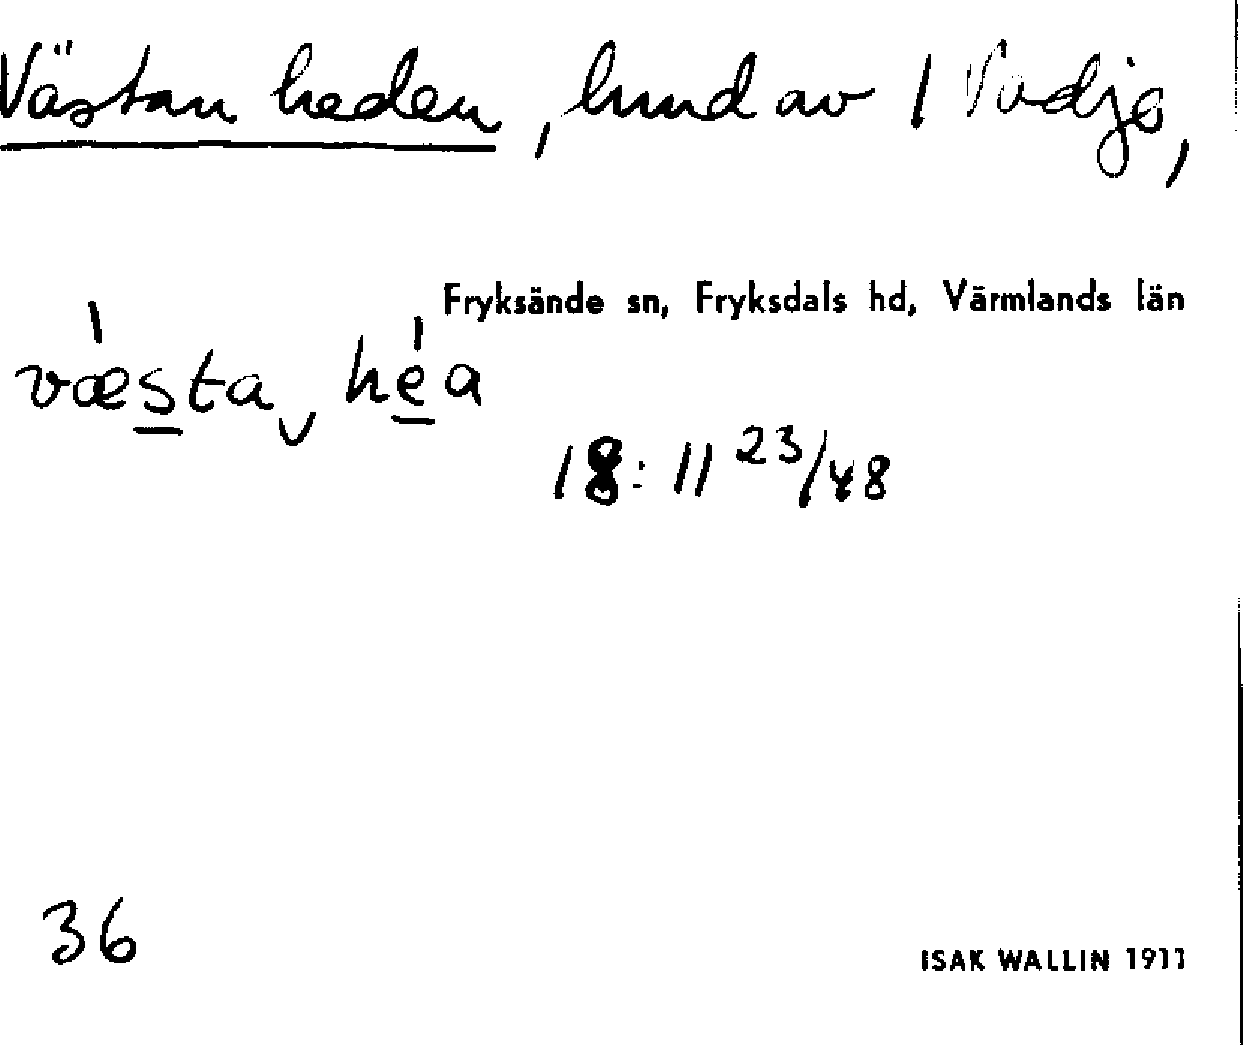 Västan heden, hmd av 1 Vadje,
Fryksände sn, Fryksdals hd, Värmlands län
væsta‿ héa
18: 11 23/48
36
ISAK WALLIN 1911